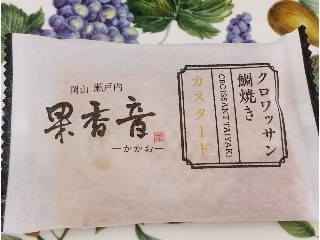 岡山 瀬戸内
果香音
ーかかおー
クロワッサン
鯛焼き
CROISSANT TAIYAKI
カスタード